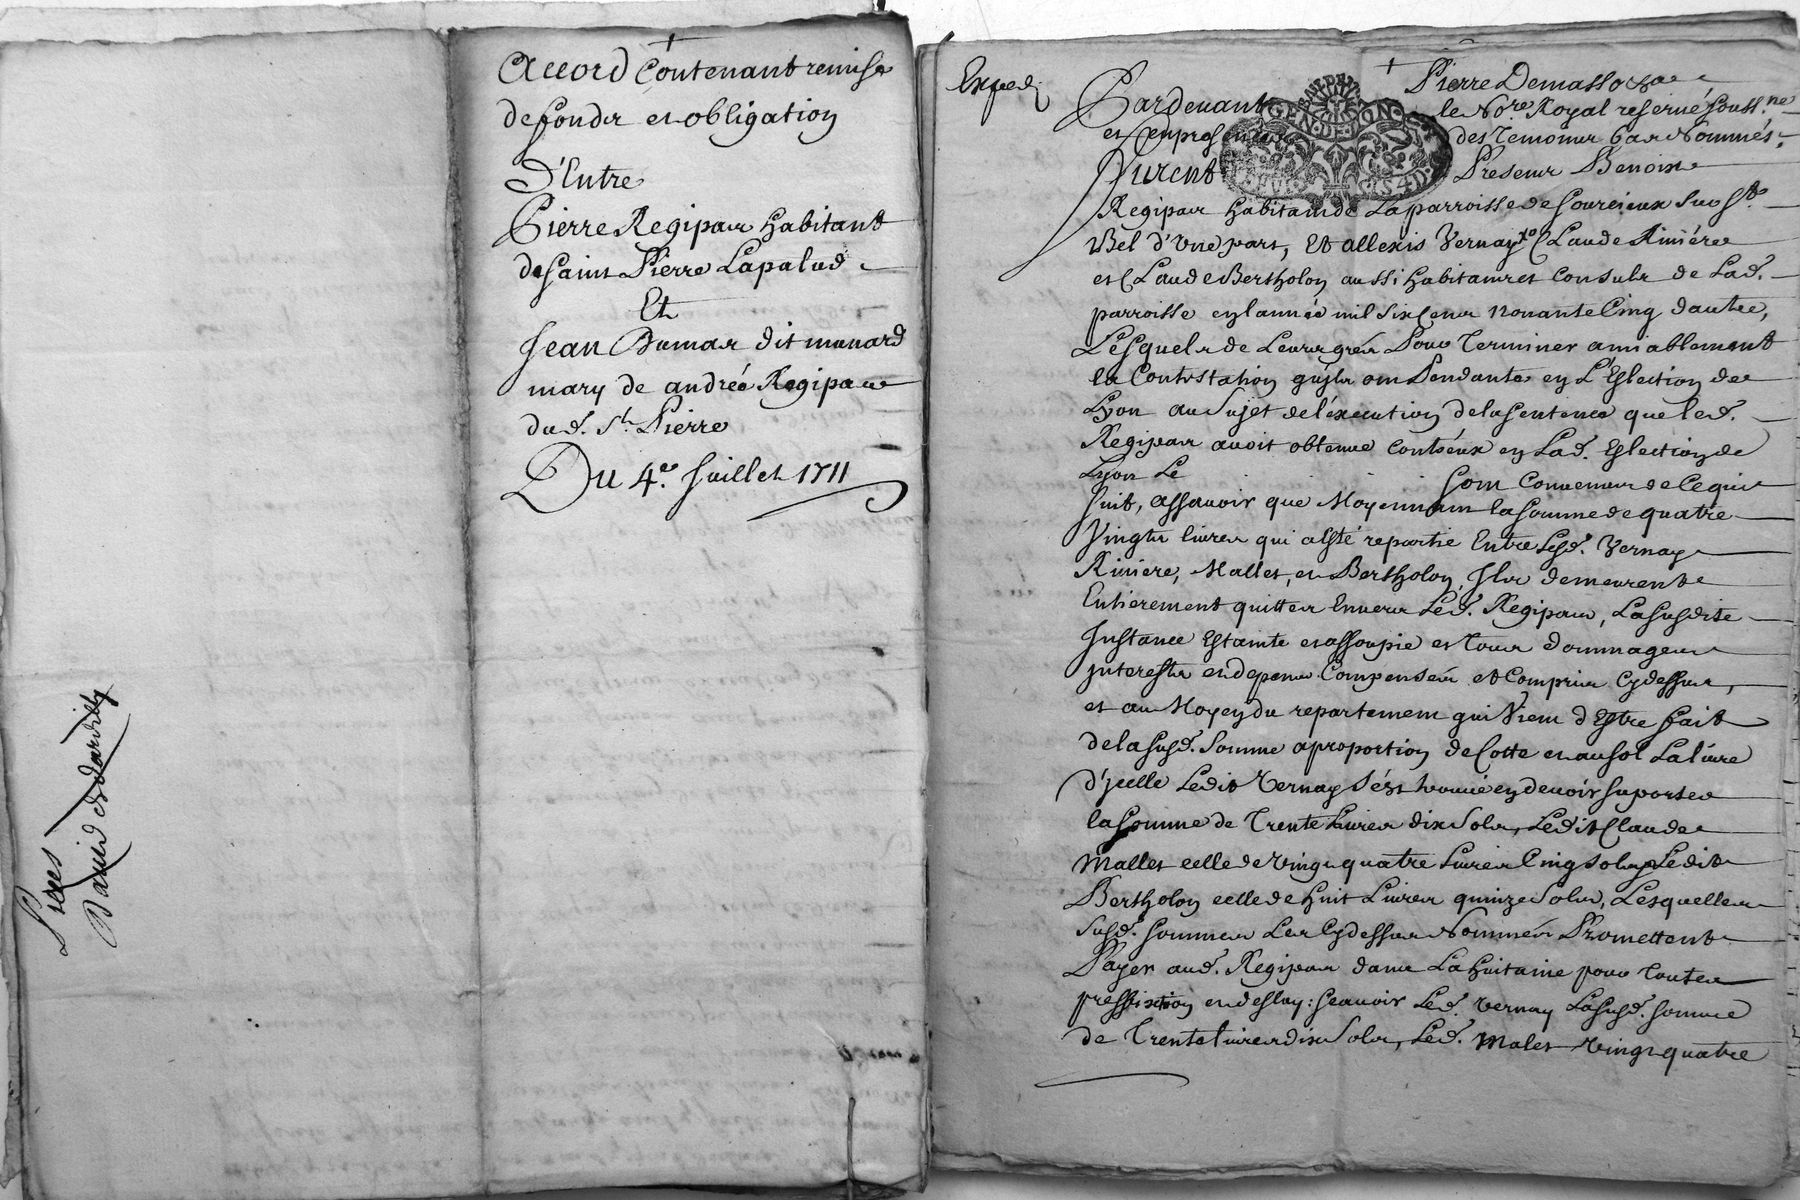 Accord Contenant remise
de fonds et obligation
D'Entre
Pierre Regipas habitant
de saint Pierre Lapalud
Et
Jean Dumas dit munard
mary de andréa Regipas
dud. St. Pierre
Du 4e. Juillet 1711
Pardevant Pierre Demasso
le Nore. Royal reservé souss.ne
et en présence des Temoins bas Nommés,
Furent Presens Benoist
Regipas habitant de La parroisse de Sourcieux sur St.
Bel d'une part, Et allexis Vernay Claude Riviére
et Claude Bertholon aussi habitants et Consuls de Lad.
parroisse en l'année mil six cens nonante Cinq d'autre,
Lesquels de Leurs grés Pour Terminer amiablement
la Contestation qu'ils ont Pendante en L'Eslection de
Lyon au Sujet de l'éxecution de la sentence que led.
Regipas avoit obtenue contr'eux en Lad. Eslection de
Lyon Le
Sont Convenus de Ce qui
suit, assavoir que Moyennant la somme de quatre
Vingts livres qui a esté repartie Entre Lesd. Vernay
Riviere, Mallet, et Bertholon, Ils demeurent
Entierement quittes Envers Led. Regipas, La susdite
Instance Estainte et assoupie et Tous dommages
interests et depens Compensés et Compris Cy dessus,
et au Moyen du repartement qui Vient d'Estre fait
de la susd. somme a proportion de Cotte et au sol La livre
d'jcelle Ledit Vernay s'ést trouvé en devoir suporter
la somme de Trente Livres dix Sols, Ledit Claude
Mallet celle de Vingt quatre Livres Cinq sols, Ledit
Bertholon celle de huit Livres quinze Sols, Lesquelles
susd. sommes Les Cy dessus Nommés Promettent
Payer aud. Regipas dans La huitaine pour Toutes
preffixtion et deslay: scavoir Led. Vernay La susd. somme
de Trente livres dix Sols, Led. Malet Vingt quatre